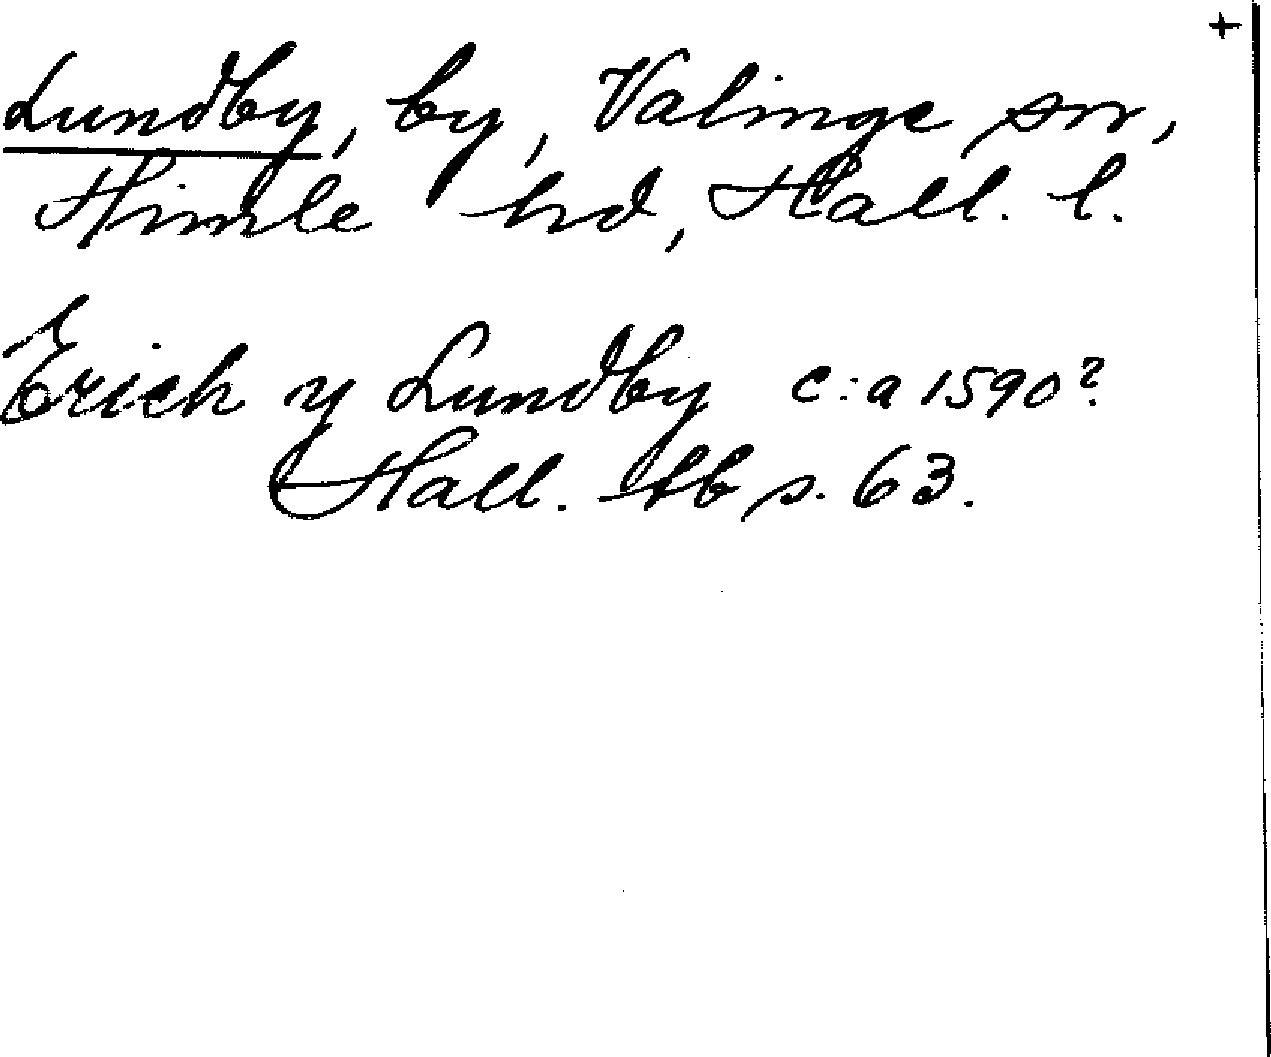 +
Lundby, by, Valinge sn,
Himle hd, Hall. l.
Erich y Lundby c:a 1590?
Hall. Ab s. 63.